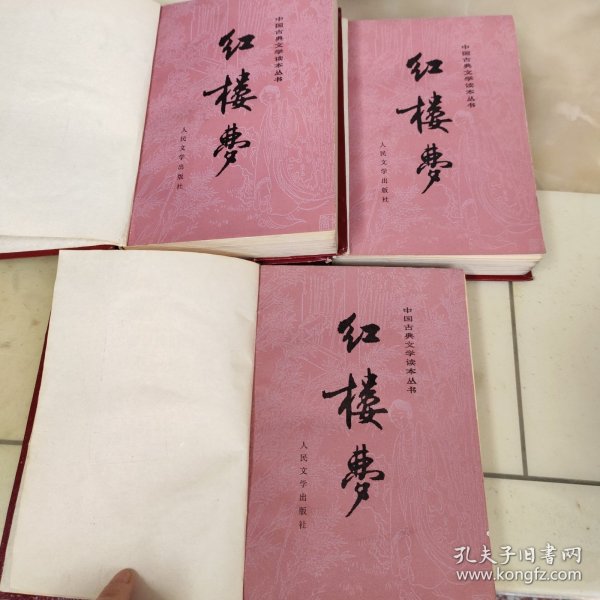 中国古典文学读本丛书
红楼梦
人民文学出版社
中国古典文学读本丛书
红楼梦
人民文学出版社
中国古典文学读本丛书
红楼梦
人民文学出版社
孔夫子旧书网
www.kongfz.com